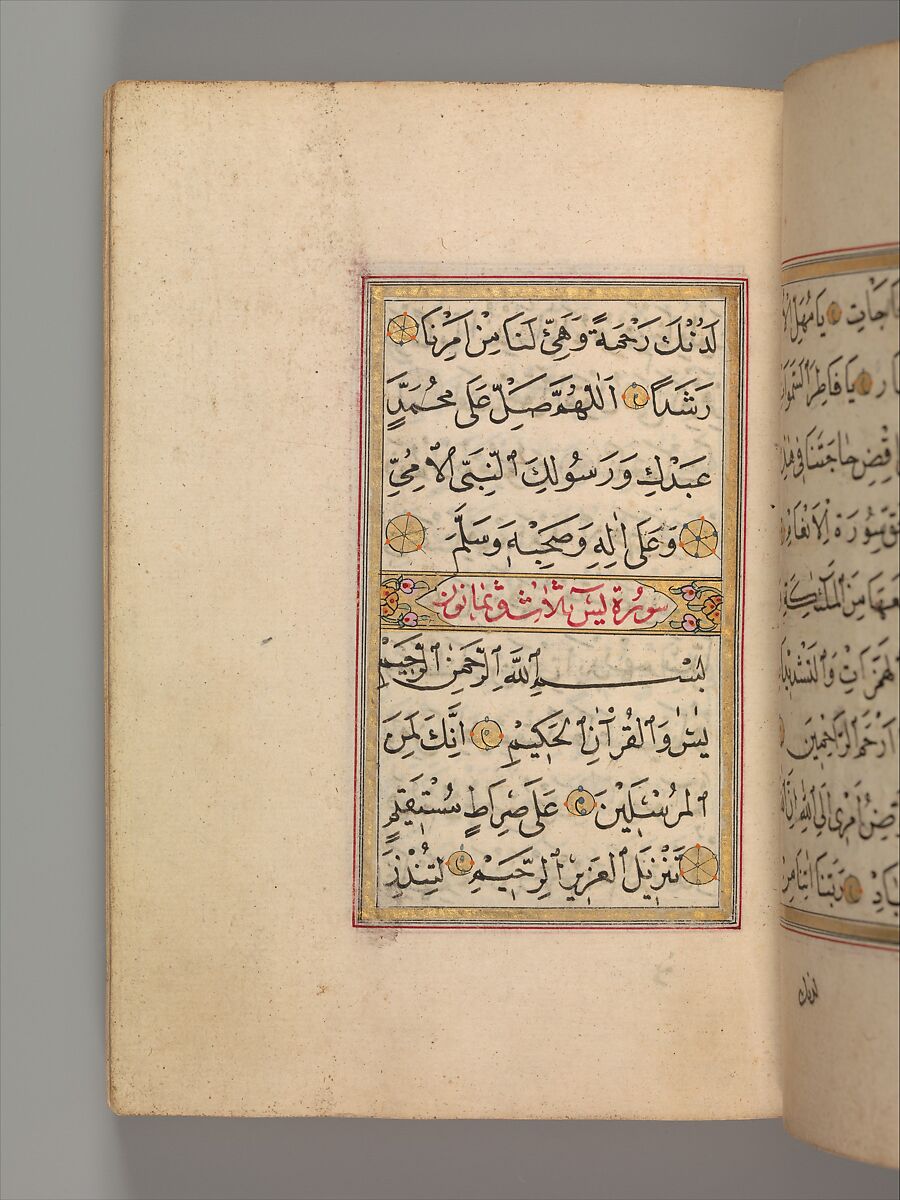 لَدُنْكَ رَحْمَةً وَهَيِّئْ لَنَا مِنْ اَمْرِنَا
رَشَدًا اَللّٰهُمَّ صَلِّ عَلَى مُحَمَّدٍ
عَبْدِكَ وَرَسُولِكَ النَّبِيِّ الْاُمِّيِّ
وَعَلَى اٰلِهِ وَصَحْبِهِ وَسَلَّمَ
سورة يس ثلاث وثمانون
بِسْمِ اللّٰهِ الرَّحْمٰنِ الرَّحِيمِ
يٰسٓ وَالْقُرْآنِ الْحَكِيمِ اِنَّكَ لَمِنَ
الْمُرْسَلِينَ عَلَى صِرَاطٍ مُسْتَقِيمٍ
تَنْزِيلَ الْعَزِيزِ الرَّحِيمِ لِتُنْذِرَ
حَاجَاتِ يَا مُهِلَّ
يَا فَاطِرَ السَّمٰوَاتِ
اقْضِ حَاجَتَنَا فِي هٰذِهِ
سُورَةِ الْاَنْعَامِ
مَعَهَا مِنَ الْمَلٰئِكَةِ
وَالتَّشْدِيدَاتِ
اَرْحَمَ الرَّاحِمِينَ
اَمْرِي اِلَى اللّٰهِ اِنَّ
رَبَّنَا اٰتِنَا مِنْ
لدنك